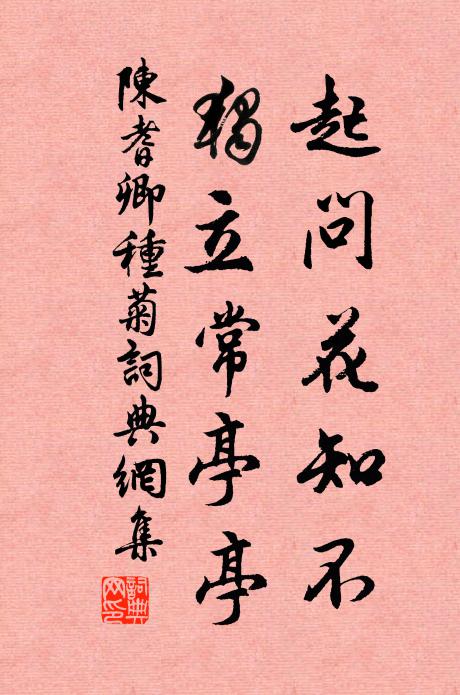 起問花知不
獨立常亭亭
陳耆卿種菊詞典網集
詞典網印